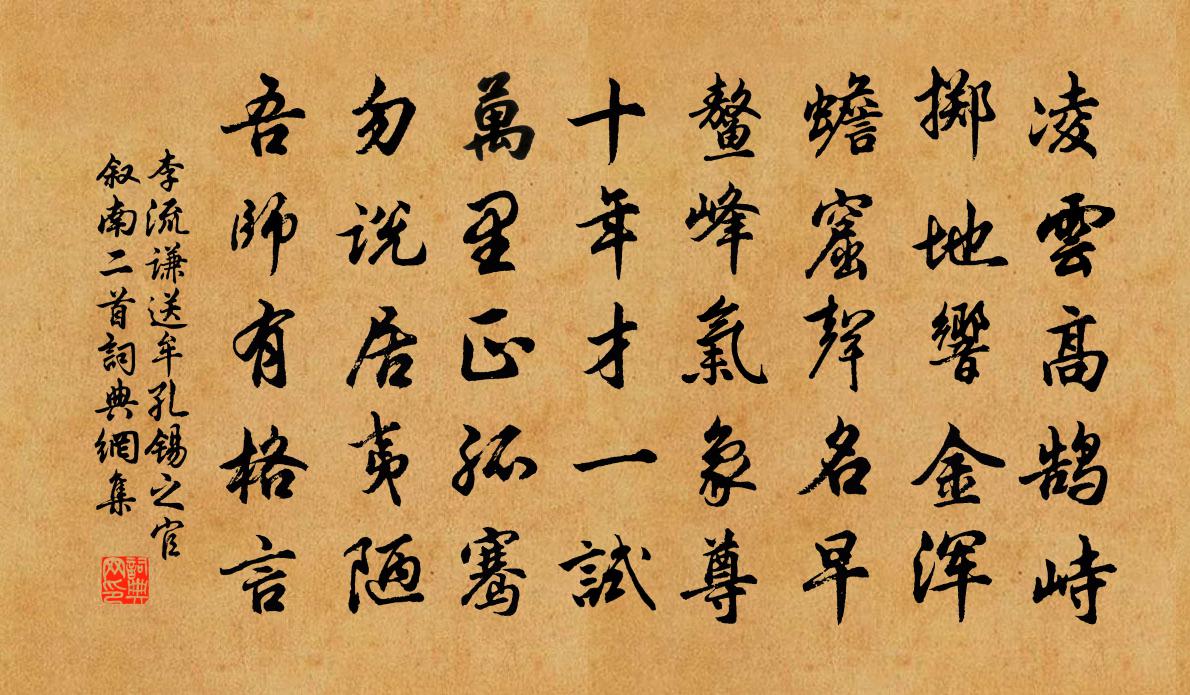 凌雲高鹄峙
掷地響金渾
蟾窟聲名早
鰲峰氣象尊
十年才一試
萬里正孤騫
勿説居夷陋
吾師有格言
李流謙送牟孔锡之官
叙南二首詞典網集
詞典
网印